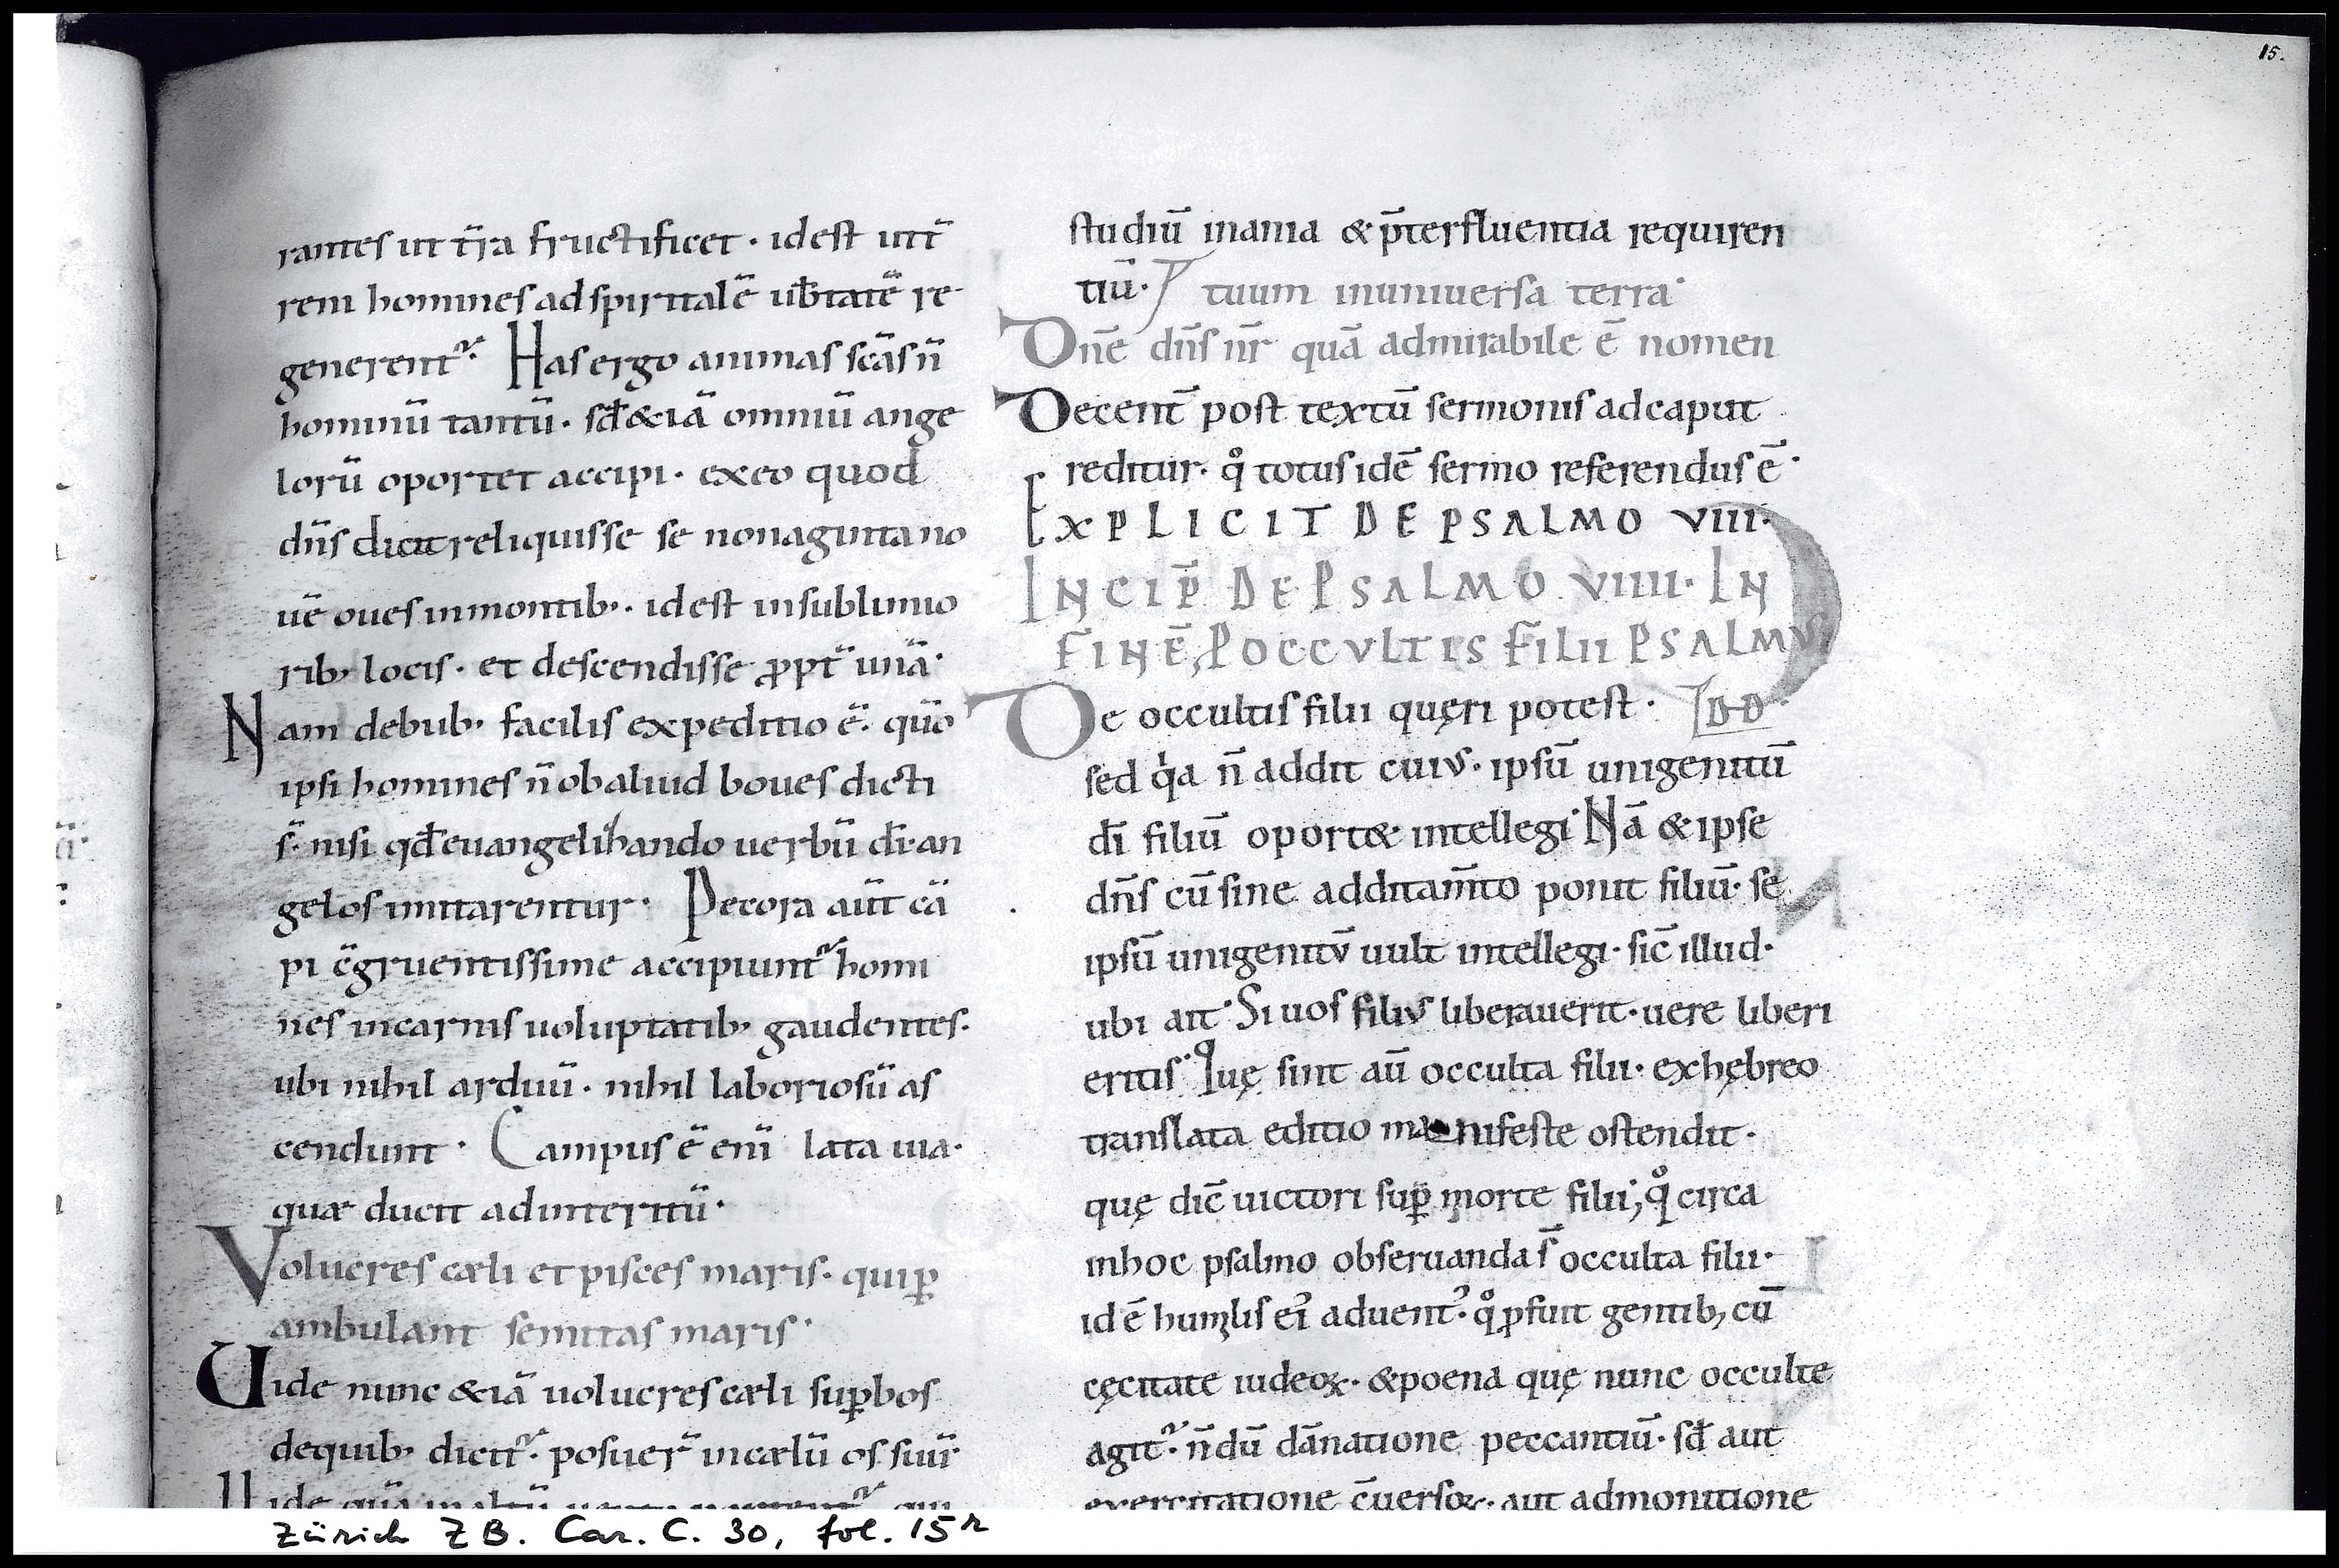 15.
rantes ut t̄ra fructificet · idest utt̄
rem homines ad spiritalē ub̄tatē re
generent᷑· Has ergo animas sc̄as n̄
hominū tantū · sđ &iā omniū ange
lorū oportet accipi · ex eo quod
dn̄s dicit reliquisse se nonaginta no
uē oues in montib; · idest in sublimio
rib; locis · et descendisse ꝓpt̄ unā·
Nam de bub; facilis expeditio ē· quō
ipsi homines n̄ ob aliud boues dicti
s̄· nisi qđ euangelihando uerbū dī· an
gelos imitarentur · Pecora aūt cā
pi c̄gruentissime accipiunt᷑ homi
nes in carnis uoluptatib; gaudentes·
ubi nihil arduū · nihil laboriosū as
cendunt · Campus ē enī lata uia·
quæ ducit ad interitū·
Volucres cæli et pisces maris· qui ꝑ
ambulant semitas maris·
Uide nunc &iā uolucres cæli suꝑbos
de quib; dicit᷑· posuer̄ in cælū os suū·
studiū inania & p̄terfluentia requiren
tiū· tuum in uniuersa terra·
Dn̄e dn̄s nr̄ quā admirabile ē nomen
Decent̄ post textū sermonis ad caput
reditur· qͦ totus idē sermo referendus ē·
EXPLICIT DE PSALMO VIII·
INCIP̄ DE PSALMO VIIII· IN
FINĒ, P OCCVLTIS FILII PSALMVS
De occultis filii quęri potest · DD·
sed qͥa n̄ addit cuiuſ· ipsū unigenitū
dī filiū oport& intellegi· Nā & ipse
dn̄s cū sine additam̄to ponit filiū· se
ipsū unigenitū uult intellegi· sic̄ illud·
ubi ait· Si uos filius liberauerit· uere liberi
eritis· Quę sint aū occulta filii· ex hębreo
translata editio manifeste ostendit·
quę dic̄ uictori suꝑ morte filii; qͦ circa
in hoc psalmo obseruanda s̄ occulta filii·
id ē humilis eī aduent᾽· qͦ ꝓfuit gentib; cū
cęcitate iudeoꝝ· & poena quę nunc occulte
agit᷑· n̄dū dānatione peccantiū· sđ aut
exercitatione c̄uersoꝝ· aut admonitione
Zürich ZB. Car. C. 30, fol. 15r